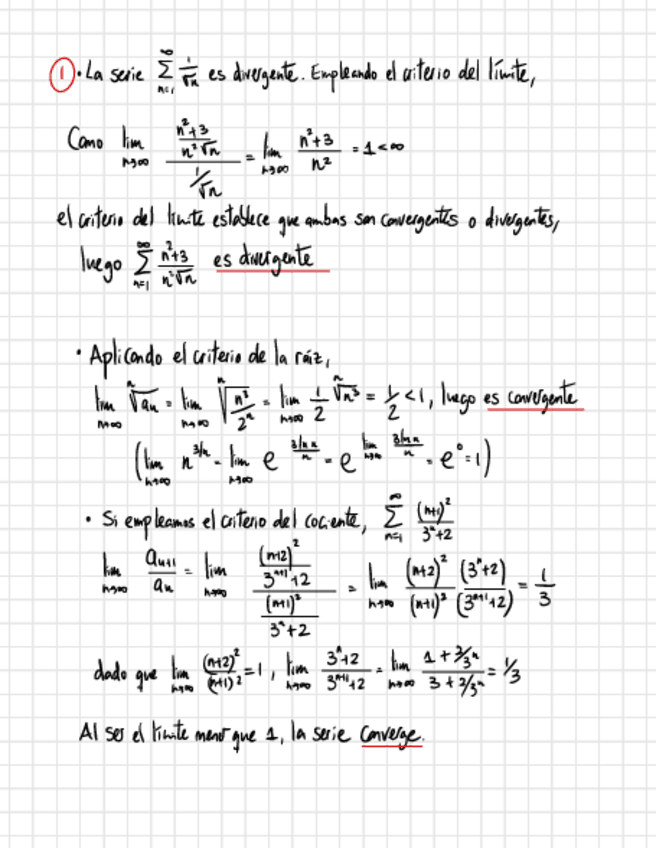 ① · La serie ∑_{n=1}^{∞} 1/√n es divergente. Empleando el criterio del límite,
Como lim_{n→∞} ((n²+3)/(n²√n))/(1/√n) = lim_{n→∞} (n²+3)/n² = 1 < ∞
el criterio del limite establece que ambas son convergentes o divergentes,
luego ∑_{n=1}^{∞} (n²+3)/(n²√n) es divergente
· Aplicando el criterio de la raíz,
lim_{n→∞} ⁿ√aₙ = lim_{n→∞} ⁿ√(n³/2ⁿ) = lim_{n→∞} 1/2 ⁿ√n³ = 1/2 < 1, luego es convergente
(lim_{n→∞} n^{3/n} = lim_{n→∞} e^{3 ln n/n} = e^{lim_{n→∞} 3 ln n/n} = e⁰ = 1)
· Si empleamos el criterio del cociente, ∑_{n=1}^{∞} (n+1)²/(3ⁿ+2)
lim_{n→∞} a_{n+1}/a_n = lim_{n→∞} ((n+2)²/(3^{n+1}+2))/((n+1)²/(3ⁿ+2)) = lim_{n→∞} (n+2)²(3ⁿ+2)/((n+1)²(3^{n+1}+2)) = 1/3
dado que lim_{n→∞} (n+2)²/(n+1)² = 1, lim_{n→∞} (3ⁿ+2)/(3^{n+1}+2) = lim_{n→∞} (1+2/3ⁿ)/(3+2/3ⁿ) = 1/3
Al ser el limite menor que 1, la serie converge.